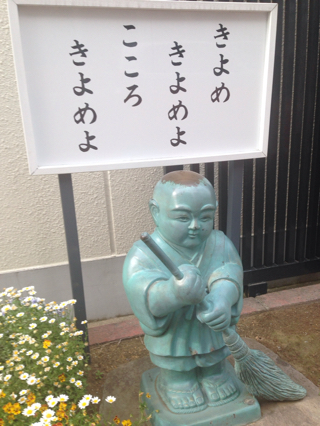 きよめ
きよめよ
こころ
きよめよ